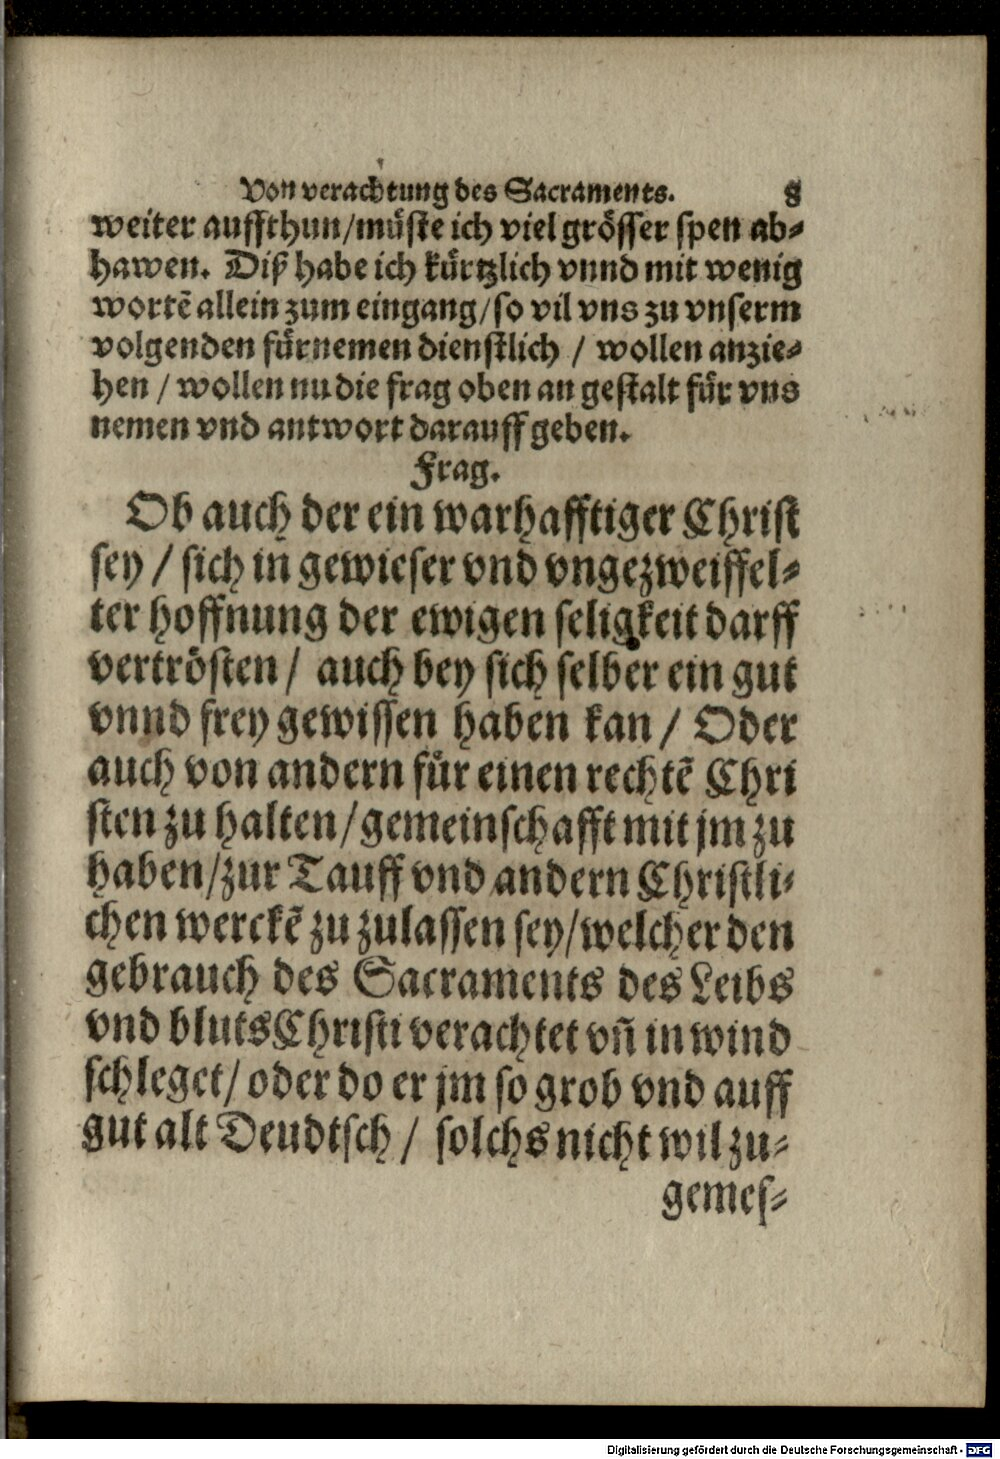 Von verachtung des Sacraments. 8
weiter auffthun/müste ich viel grösser spen ab-
hawen. Diß habe ich kürtzlich vnnd mit wenig
wortē allein zum eingang/so vil vns zu vnserm
volgenden fürnemen dienstlich / wollen anzie-
hen / wollen nu die frag oben an gestalt für vns
nemen vnd antwort darauff geben.
Frag.
Ob auch der ein warhafftiger Christ
sey / sich in gewieser vnd vngezweiffel-
ter hoffnung der ewigen seligkeit darff
vertrösten / auch bey sich selber ein gut
vnnd frey gewissen haben kan / Oder
auch von andern für einen rechtē Chri
sten zu halten/gemeinschafft mit jm zu
haben/zur Tauff vnd andern Christli-
chen werckē zu zulassen sey/welcher den
gebrauch des Sacraments des Leibs
vnd bluts Christi verachtet vn̄ in wind
schleget/ oder do er jm so grob vnd auff
gut alt Deudtsch / solchs nicht wil zu-
gemes-
Digitalisierung gefördert durch die Deutsche Forschungsgemeinschaft - DFG